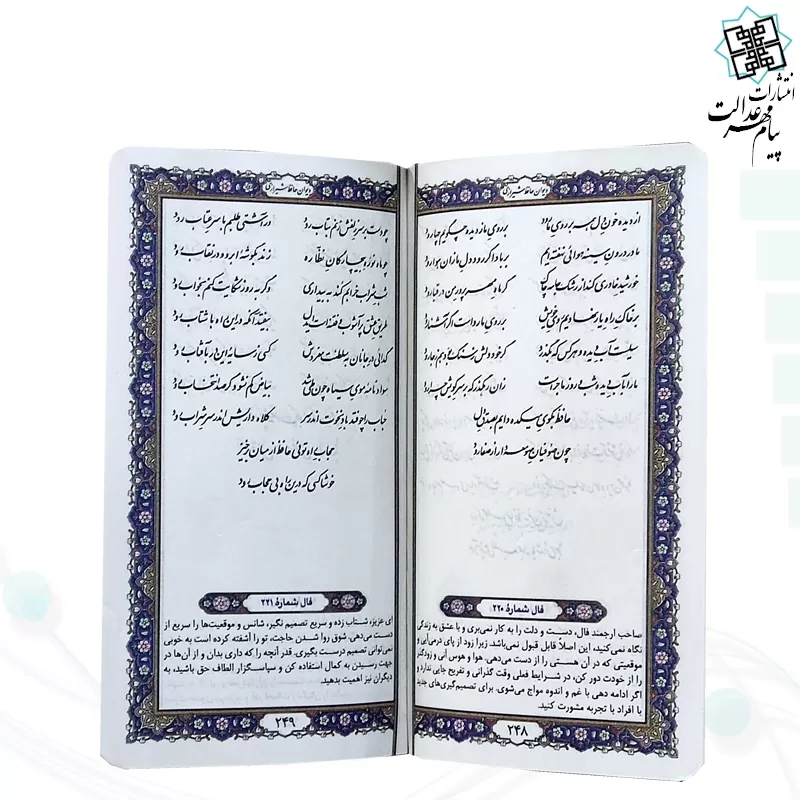 انتشارات
پیام مهر عدالت
دیوان حافظ شیرازی
از دیده خون دل همه بر روی ما رود بر روی ما ز دیده چگویم چها رود
ما در درون سینه هوائی نهفته‌ایم بر باد اگر رود دل ما زان هوا رود
خورشید خاوری کند از رشک جامه چاک گر ماه مهرپرور من در قبا رود
بر خاک راه یار نهادیم روی خویش بر روی ما رواست اگر آشنا رود
سیلست آب دیده و هر کس که بگذرد گر خود دلش ز سنگ بود هم ز جا رود
ما را بآب دیده شب و روز ماجراست زان رهگذر که بر سر کویش چرا رود
حافظ بکوی میکده دایم بصدق دل
چون صوفیان صومعه دار از صفا رود
فال شمارهٔ ۲۲۰
صاحب ارجمند فال، دست و دلت را به کار نمی‌بری و با عشق به زندگی
نگاه نمی‌کنید، این اصلاً قابل قبول نمی‌باشد. زیرا زود از پای درمی‌آیی و
موقعیتی که در آن هستی را از دست می‌دهی. هوا و هوس آنی و زودگذر
را از خودت دور کن، در شرایط فعلی وقت گذرانی و تفریح جایی ندارد و
اگر ادامه دهی با غم و اندوه مواج می‌شوی. برای تصمیم‌گیری‌های جدید
با افراد با تجربه مشورت کنید.
۲۴۸
دیوان حافظ شیرازی
چو دست بر سر زلفش زنم بتاب رود ور آشتی طلبم با سر عتاب رود
چو ماه نو ره بیچارگان نظاره زند بگوشه ابرو و در نقاب رود
شب شراب خرابم کند به بیداری وگر به روز شکایت کنم بخواب رود
طریق عشق پرآشوب و فتنه است ایدل بیفتد آنکه در این راه با شتاب رود
گدائی در جانان به سلطنت مفروش کسی ز سایه این در به آفتاب رود
سواد نامه موی سیاه چون طی شد بیاض کم نشود گر صد انتخاب رود
حباب را چو فتد باد نخوت اندر سر کلاه داریش اندر سر شراب رود
حجاب راه توئی حافظ از میان برخیز
خوشا کسی که در این راه بی حجاب رود
فال شمارهٔ ۲۲۱
ای عزیز، شتاب زده و سریع تصمیم نگیر، شانس و موقعیت‌ها را سریع از
دست می‌دهی. شوق روا شدن حاجت، تو را آشفته کرده است به خوبی
نمی‌توانی تصمیم درست بگیری. قدر آنچه را که داری بدان و از آن‌ها در
جهت رسیدن به کمال استفاده کن و سپاسگزار الطاف حق باشید، به
دیگران نیز اهمیت بدهید.
۲۴۹